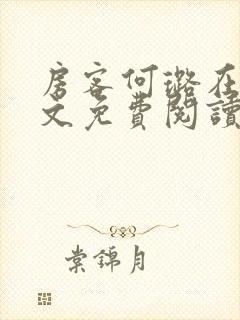 房客何璐在
文免費閱讀
棠錦月